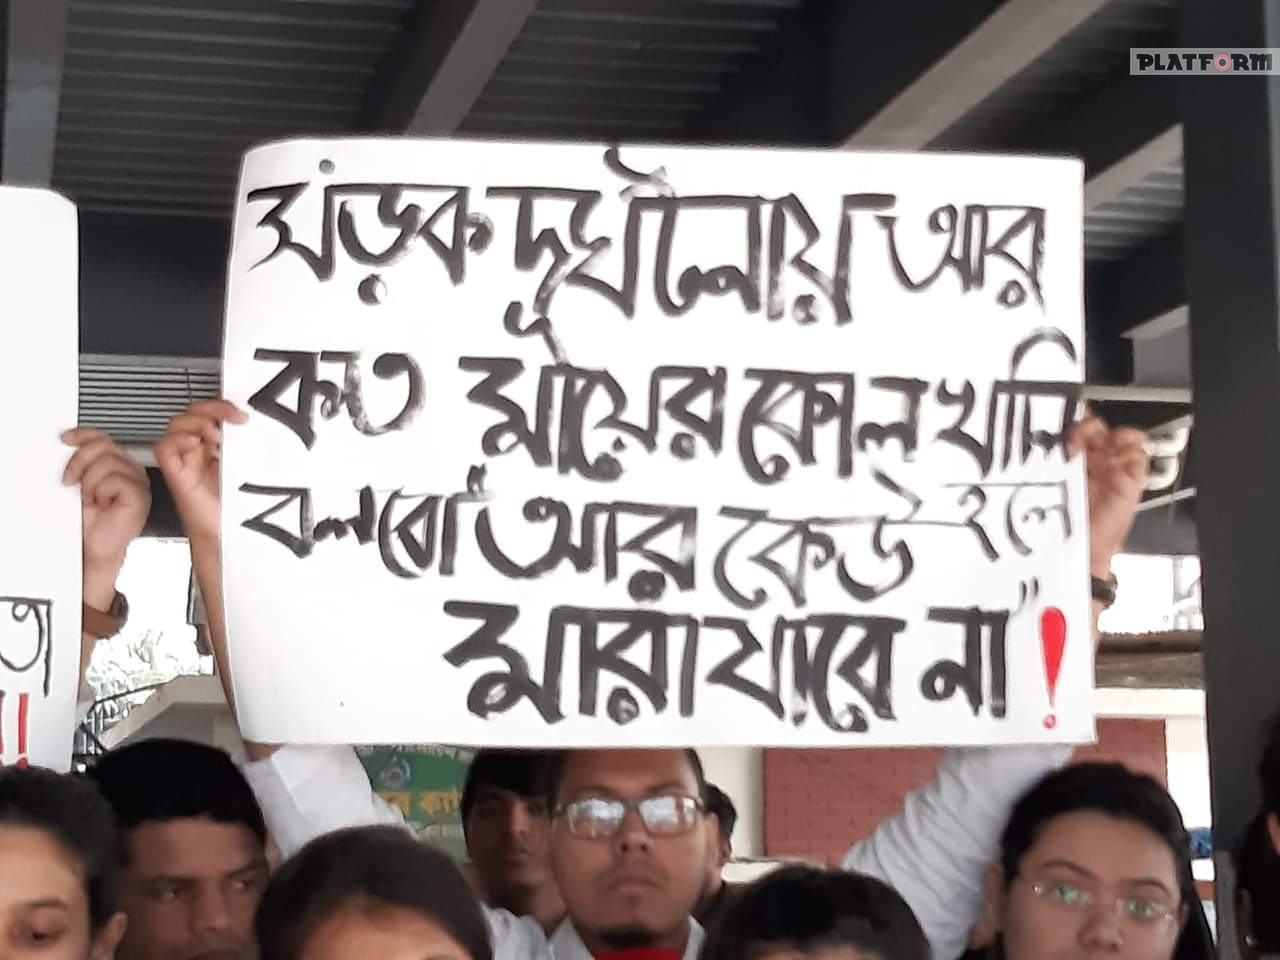 PLATFORM
সড়ক দূর্ঘটনায় আর
কত মায়ের কোল খালি
হলে
বলবো "আর কেউ
মারা যাবে না" !
ত
!!